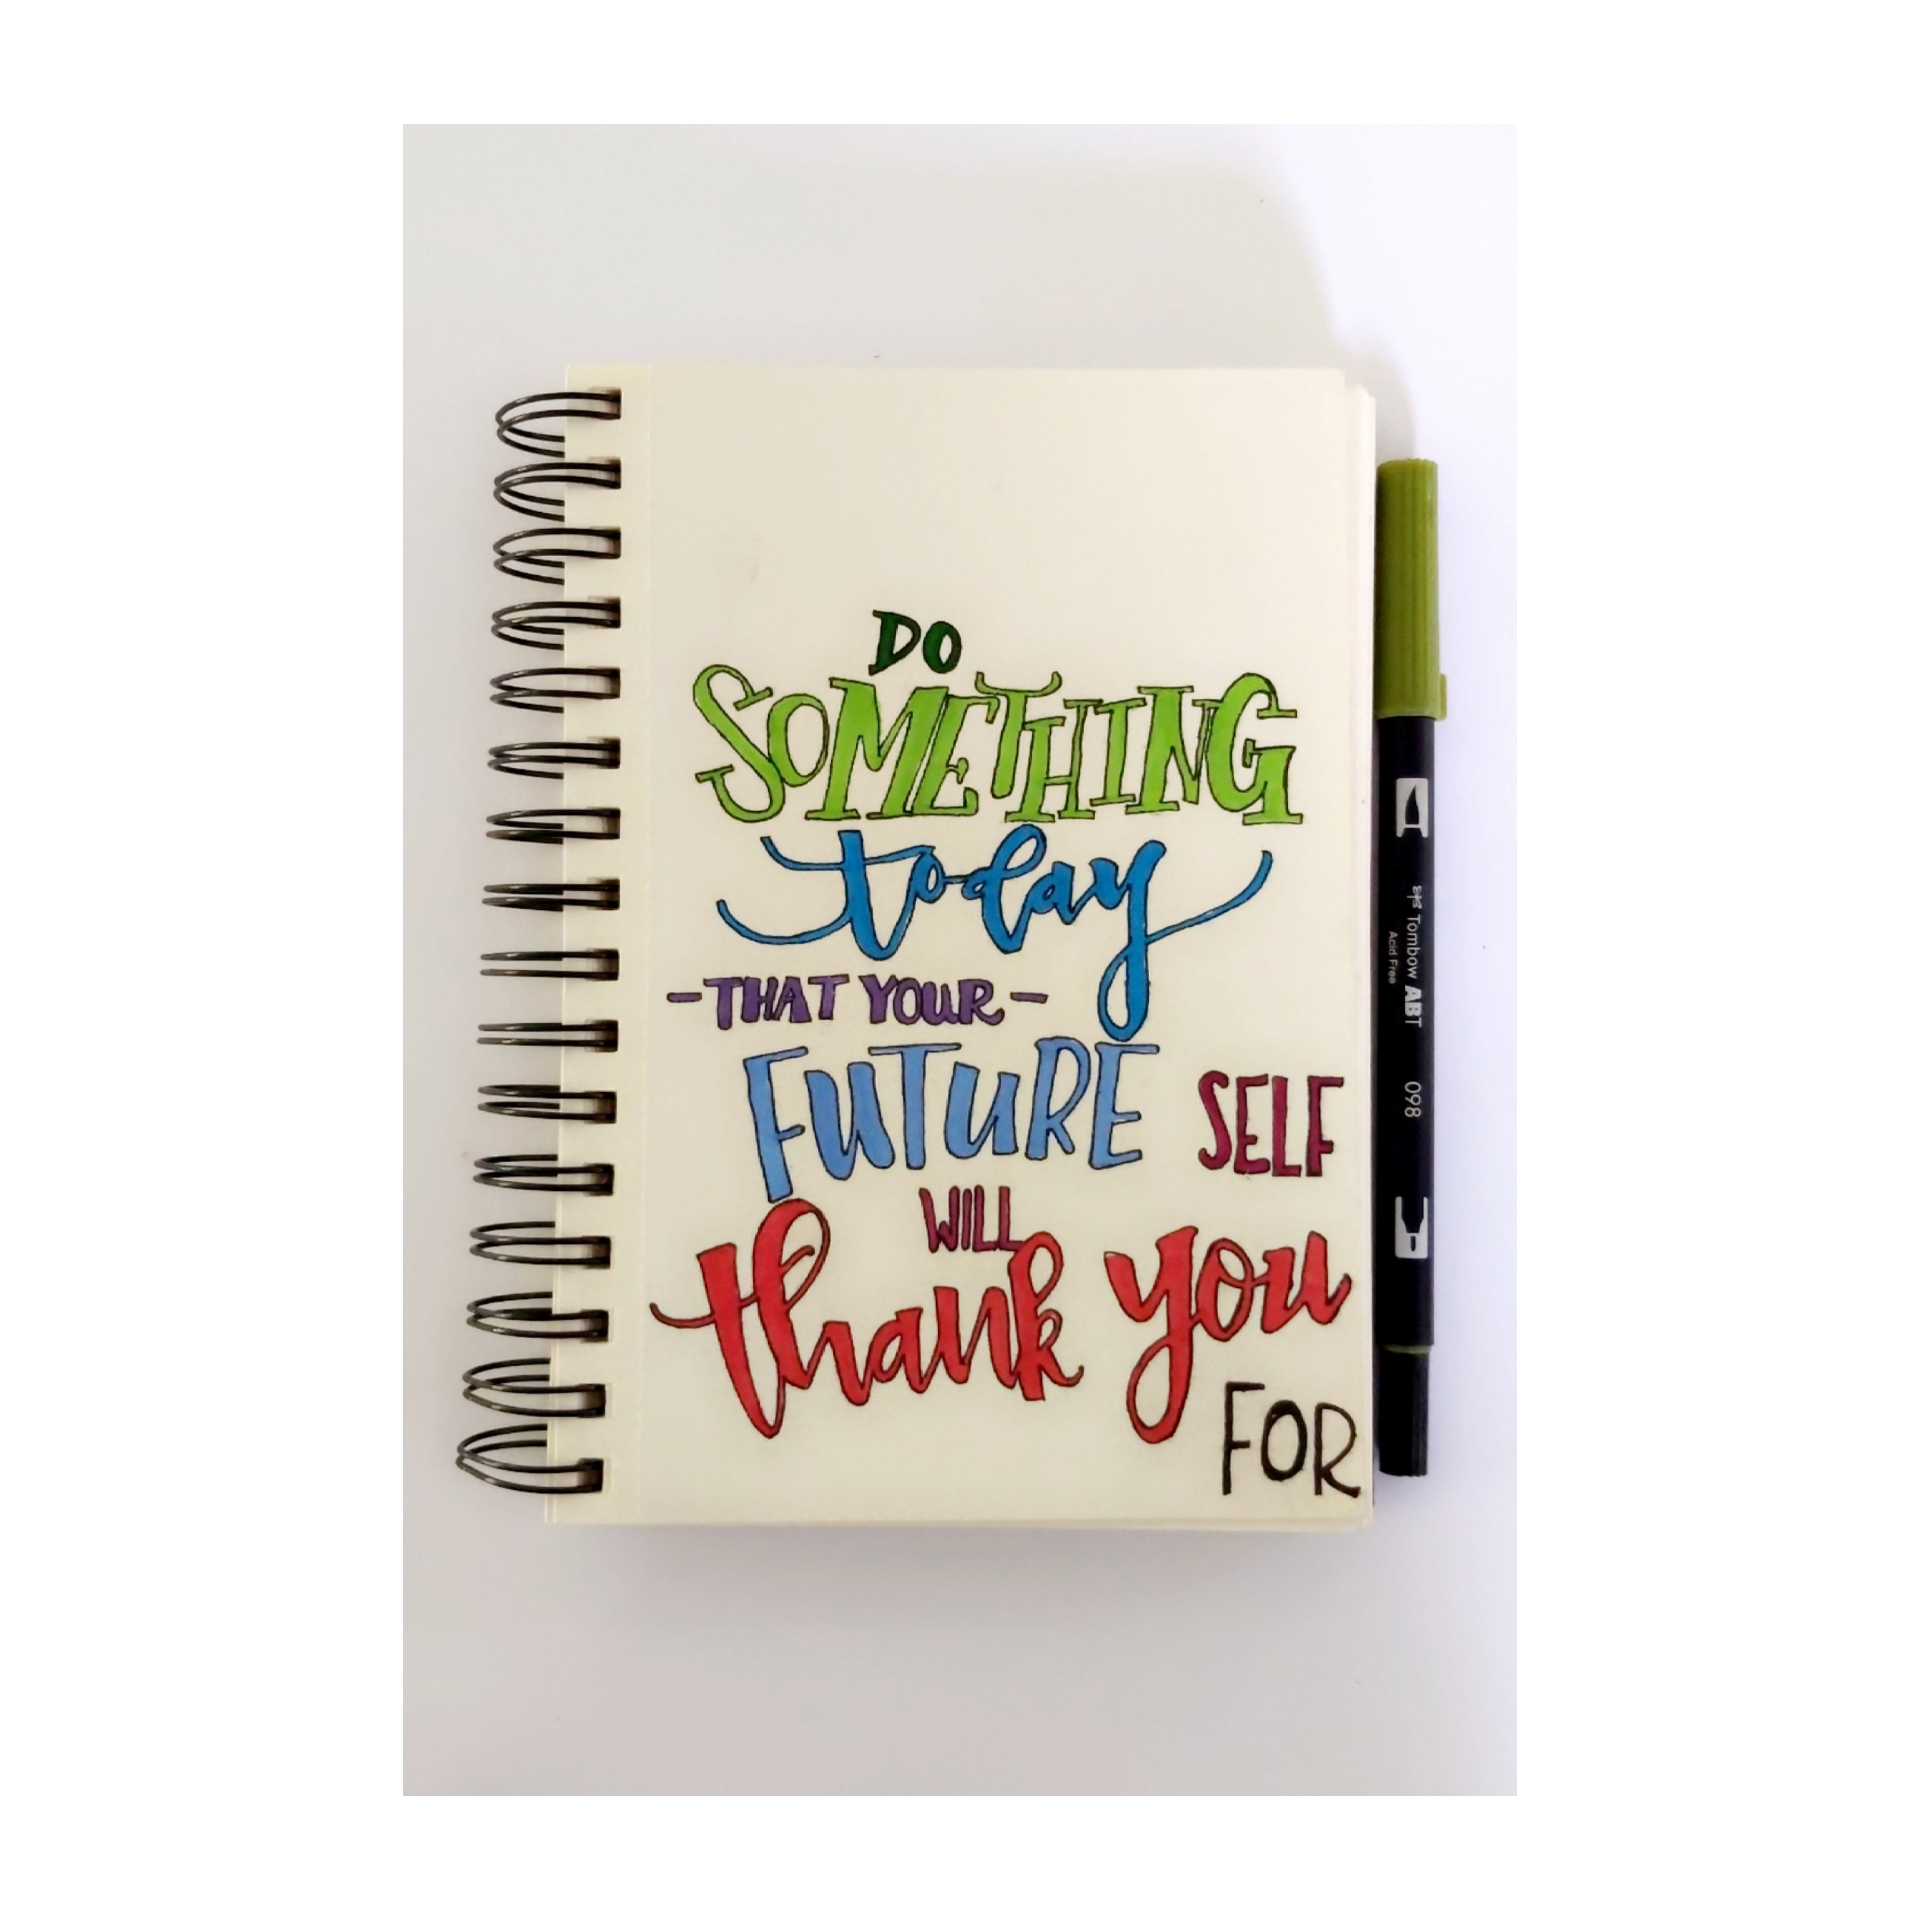 DO
SOMETHING
today
-THAT YOUR-
FUTURE SELF
WILL
thank you
FOR
Tombow ABT 098
Acid Free